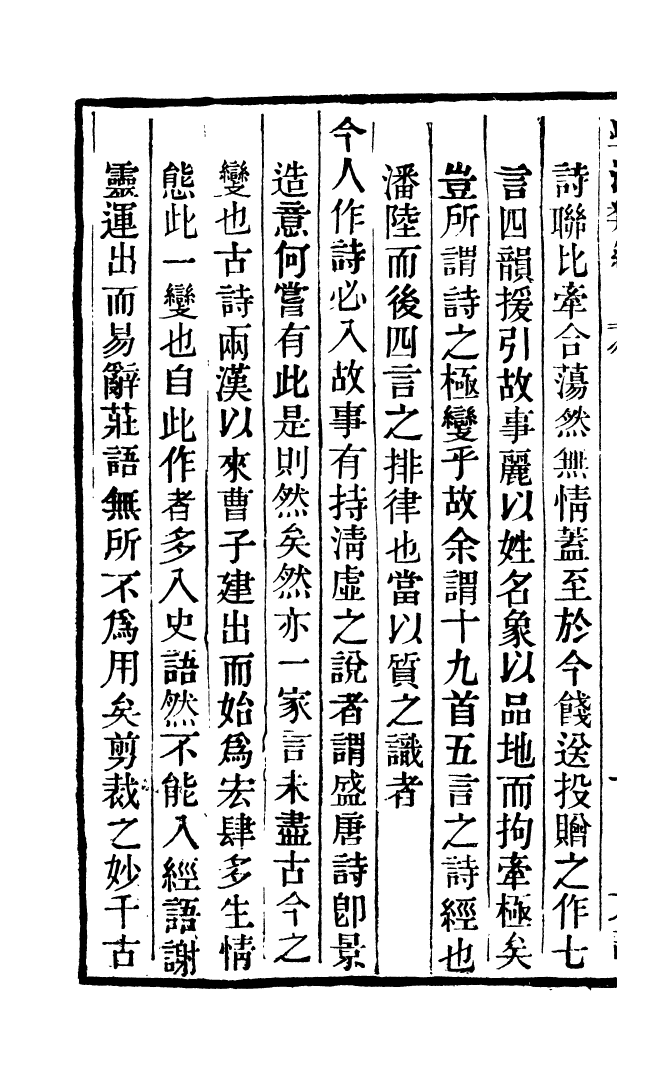 詩聯比牽合蕩然無情蓋至於今餞送投贈之作七
言四韻援引故事麗以姓名象以品地而拘牽極矣
豈所謂詩之極變乎故余謂十九首五言之詩經也
潘陸而後四言之排律也當以質之識者
今人作詩必入故事有持淸虛之說者謂盛唐詩卽景
造意何嘗有此是則然矣然亦一家言未盡古今之
變也古詩兩漢以來曹子建出而始爲宏肆多生情
態此一變也自此作者多入史語然不能入經語謝
靈運出而易辭莊語無所不爲用矣剪裁之妙千古